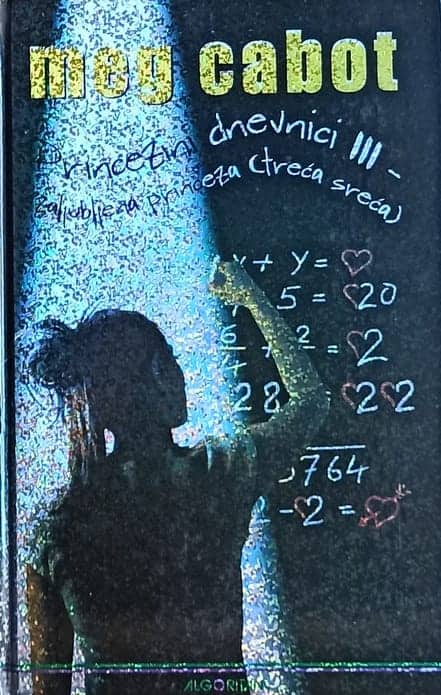 meg cabot
Princezini dnevnici III -
zaljubljena princeza (treća sreća)
x + y = ♡
5 = ♡20
6 + 2 = ♡2
28 ♡2♡2
764
-♡2 = ♡
ALGORITAM